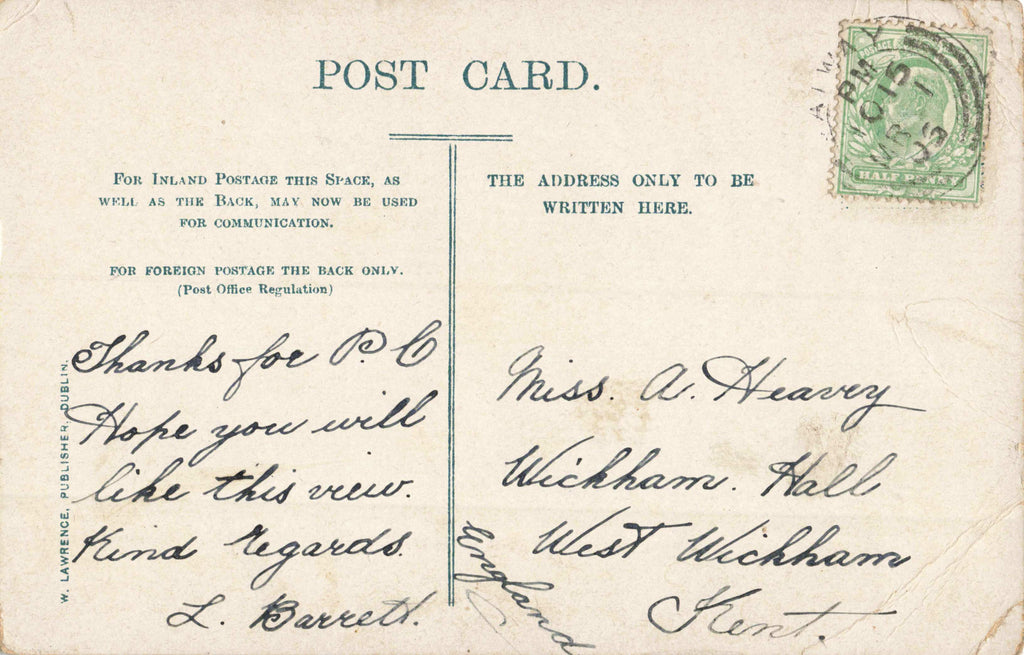 POST CARD.
FOR INLAND POSTAGE THIS SPACE, AS
WELL AS THE BACK, MAY NOW BE USED
FOR COMMUNICATION.
FOR FOREIGN POSTAGE THE BACK ONLY.
(Post Office Regulation)
THE ADDRESS ONLY TO BE
WRITTEN HERE.
POSTAGE
HALF PENNY
PM
MR 1
Thanks for P.C
Hope you will
like this view.
Kind Regards.
L. Barrett.
Miss. A. Heavey
Wickham. Hall
West Wickham
Kent.
England
W. LAWRENCE, PUBLISHER, DUBLIN.